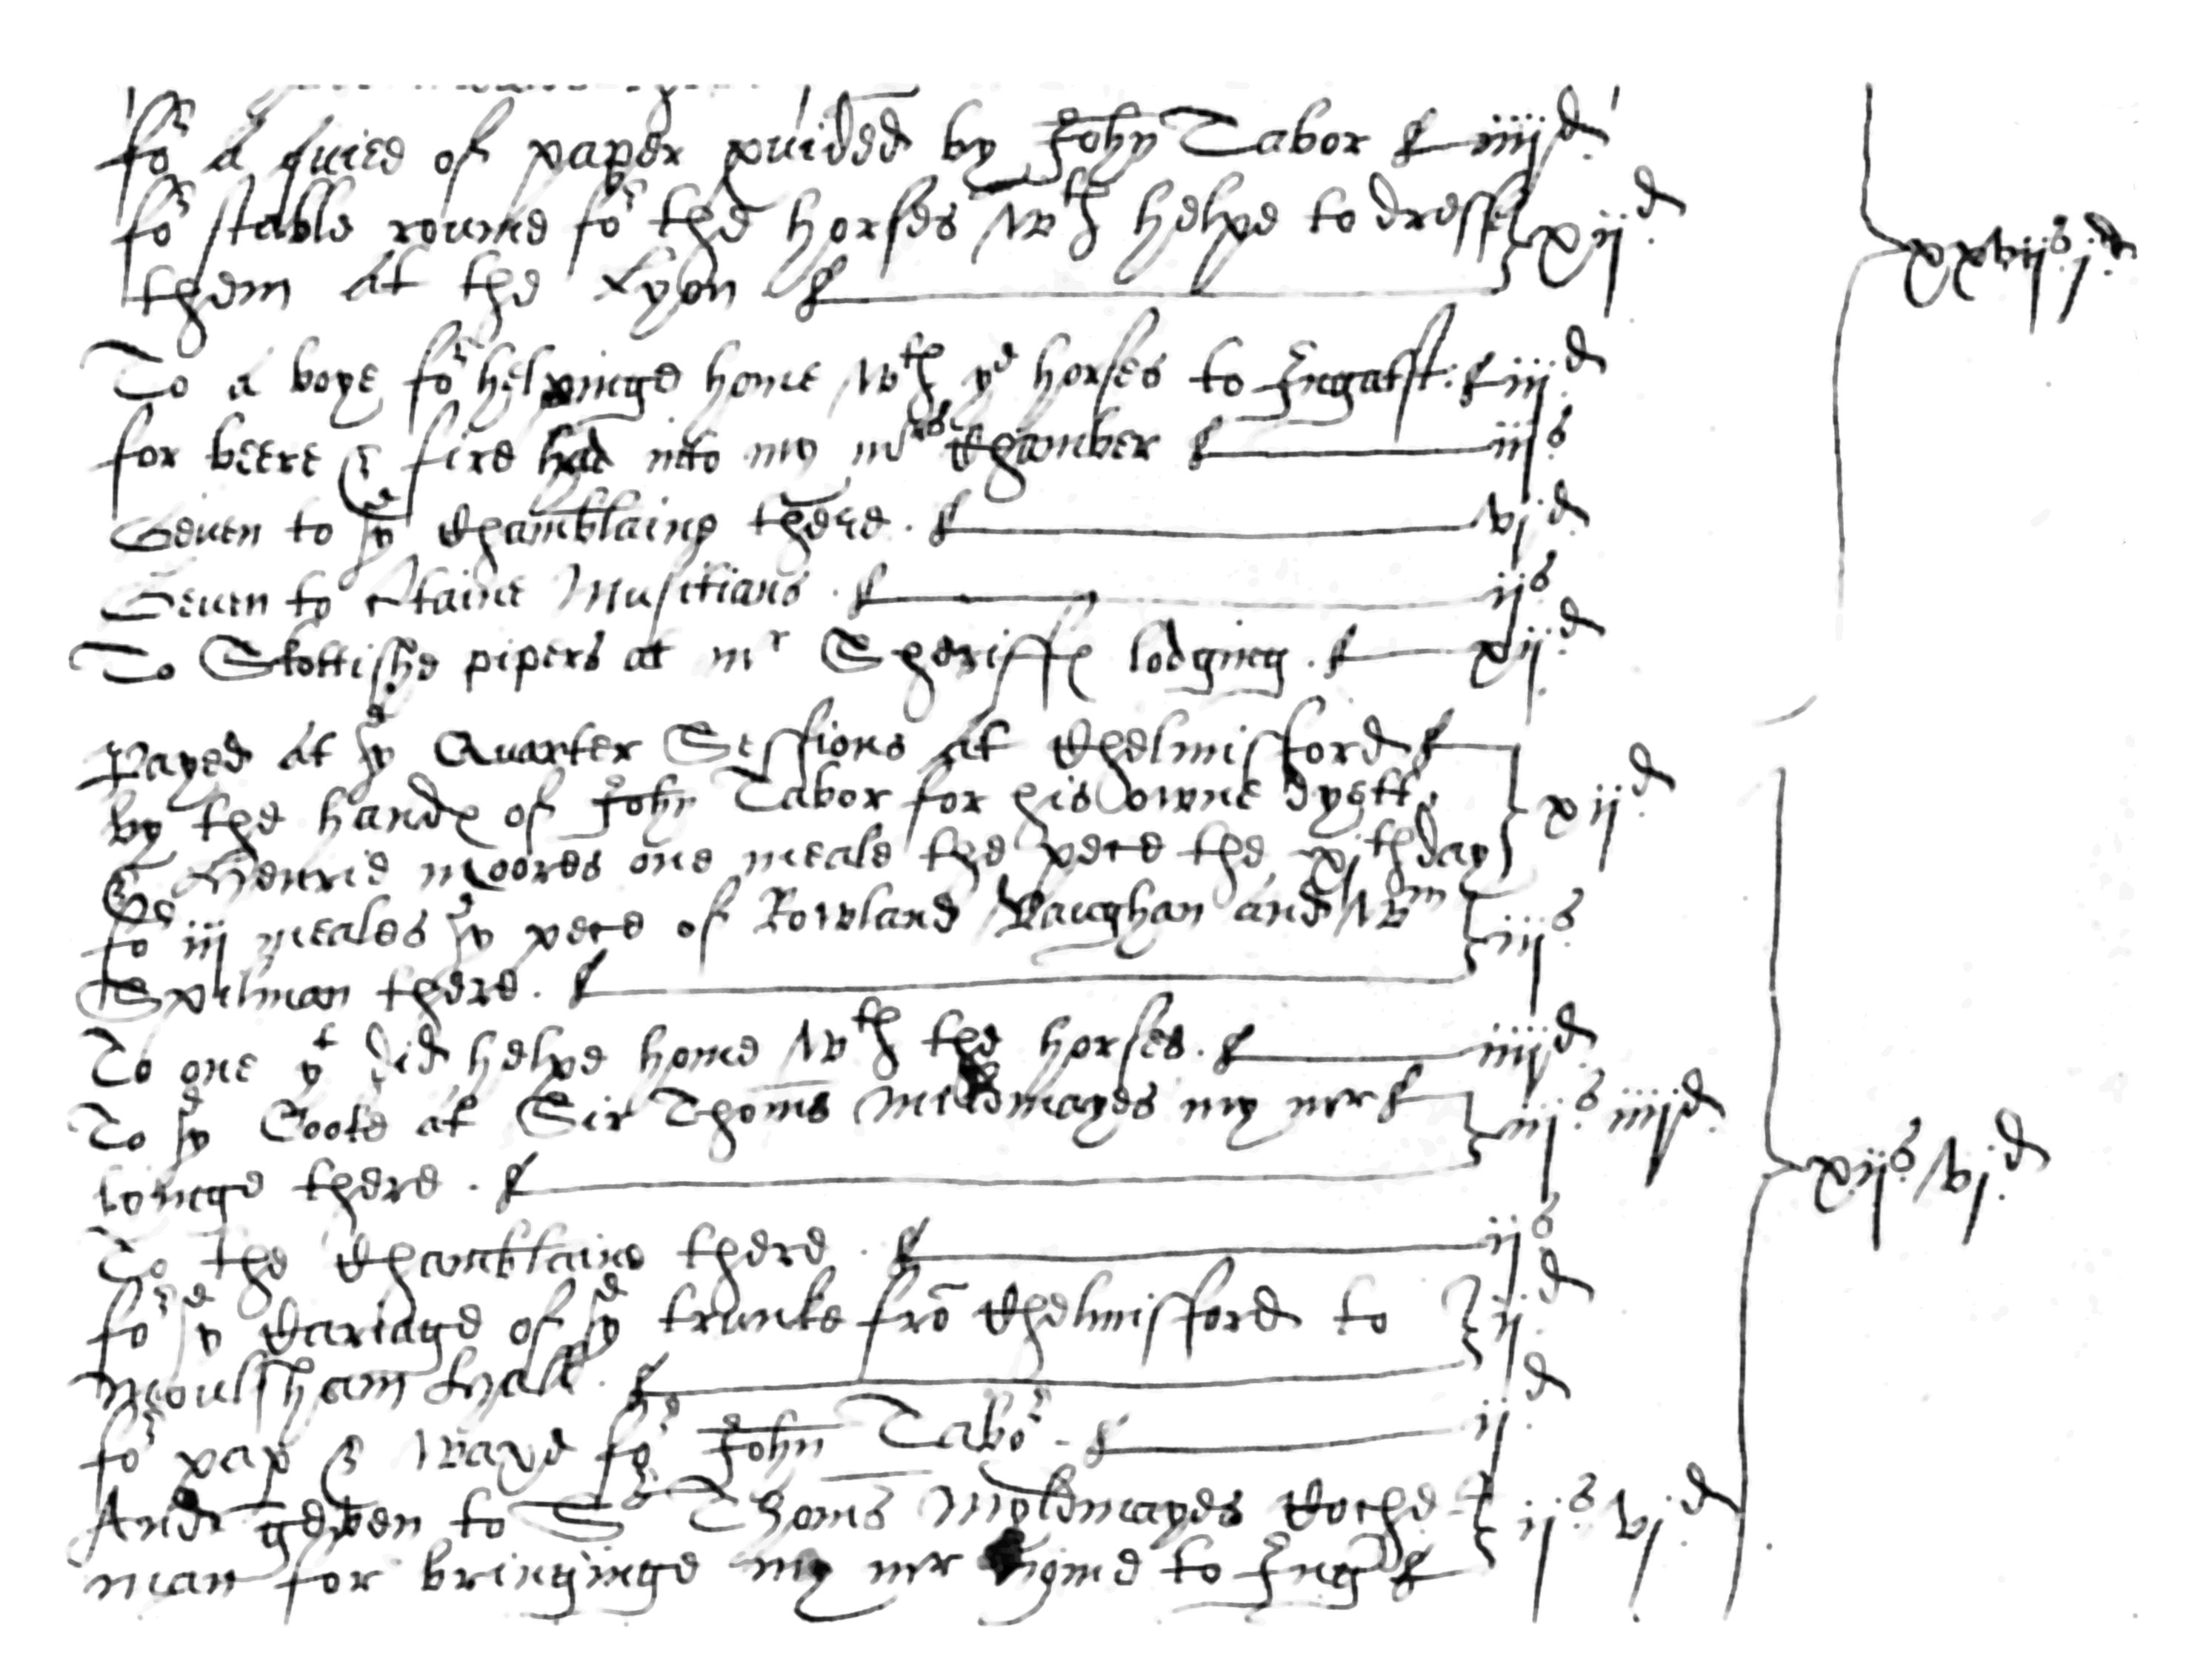 for a quire of paper pvided by John Tabor iiijd
for stable roume for the horses wth helpe to dresse xijd
them at the Lyon
xxvijs jd
To a boye for helpinge home wth ye horses to Ingatst: iijd
for beere & fire had into my mrs Chamber iijs
Geuen to ye Chamblaine there. vjd
Geuen to ctaine Musitians. ijs
To Skottishe pipers at mr Sheriffes lodging. xijd
Payed at ye Quarter Sessions at Chelmisford
by the handes of John Tabor for his owne dyett xijd
& Henrie Moores one meale the pece the xjth day
for iij meales ye pece of Rowland Vaughan and Wm iijs
Spilman there.
To one yt did helpe home wth the horses. iiijd
To ye Cooke at Sir Thoms Mildmayes my mr iijs iiijd
lyinge there.
xijs vjd
To the Chamblaine there. ijs
for ye Cariage of ye trunke fro Chelmisford to ijd
Moulsham Hall.
for pap & waxe for John Tabor ijd
And geven to Sr Thoms Myldmayes Coche- ijs vjd
man for bringinge my mr home to Ing